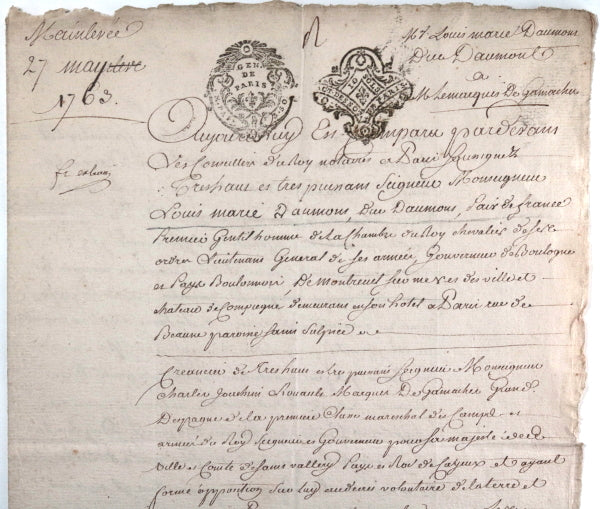 Mainlevée
27 may
1763.
GEN.
DE
PARIS
Mr. Louis marie Daumons
Duc Daumont
a
M. Lemarquis De Gamaches
Aujourdhuy Est Comparu pardevans
Les Conseillers du Roy notaires a Paris soussignez
Treshaut et tres puissans Seigneur Monseigneur
Louis marie Daumons, Duc Daumons, Pair de france
Premier Gentilhomme de la Chambre du Roy chevalier de ses
ordres Lieutenans General de ses armées Gouverneur de Boulogne
et Pays Boulonnois De Montreuil sur mer des ville et
chateau de Compiegne demeurans en son hotel a Paris rue de
Beaune paroisse saint Sulpice
Creancier de Treshaut et tres puissans Seigneur Monseigneur
Charles Joachim Rouault Marquis De Gamaches Grand
Despagne de la premiere Classe marechal des Camps et
armées du Roy Seigneur et Gouverneur pour sa majesté
ville et Comté de Saint vallery Pays et Roc de Cayeux et ayant
formé opposition sur luy au decret volontaire de la terre et